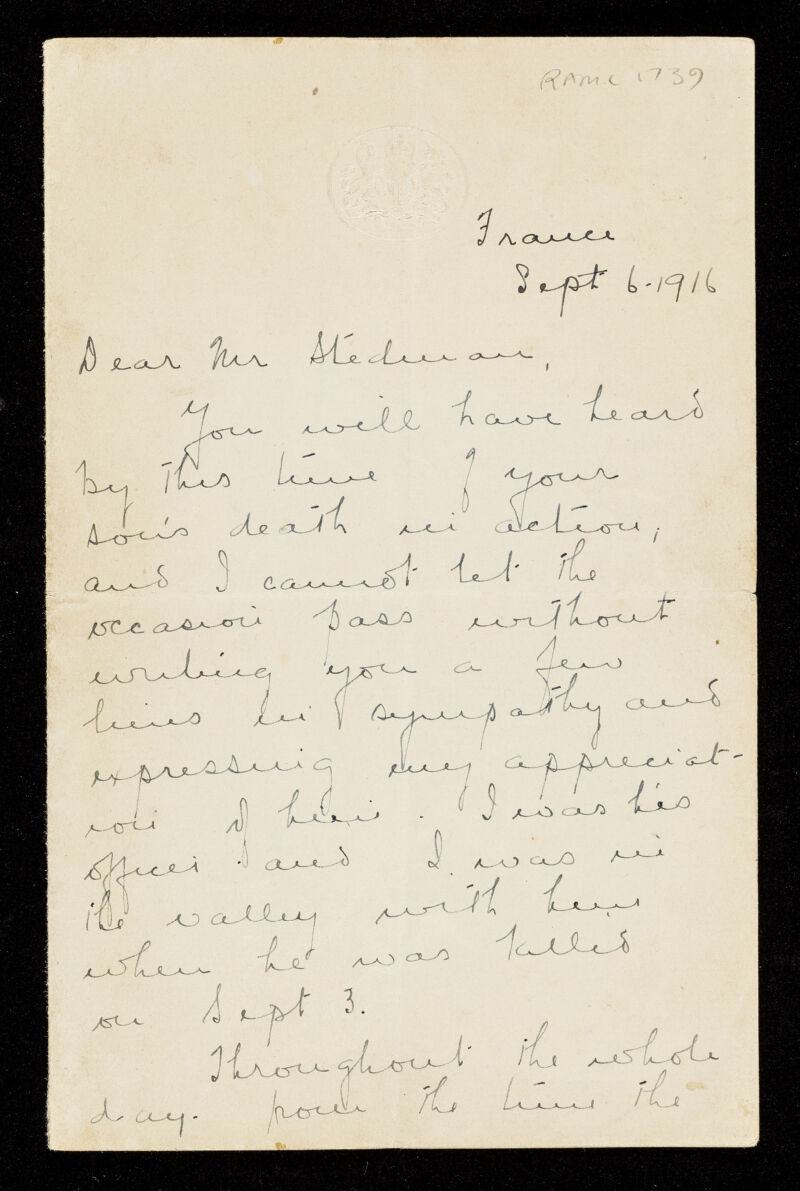 RAMC 1739
France
Sept 6-1916
Dear Mr Stedman,
You will have heard
by this time of your
son's death in action,
and I cannot let the
occasion pass without
writing you a few
lines in sympathy and
expressing my appreciat-
ion of him. I was his
officer and I was in
the valley with him
when he was killed
on Sept 3.
Throughout the whole
day. from the time the